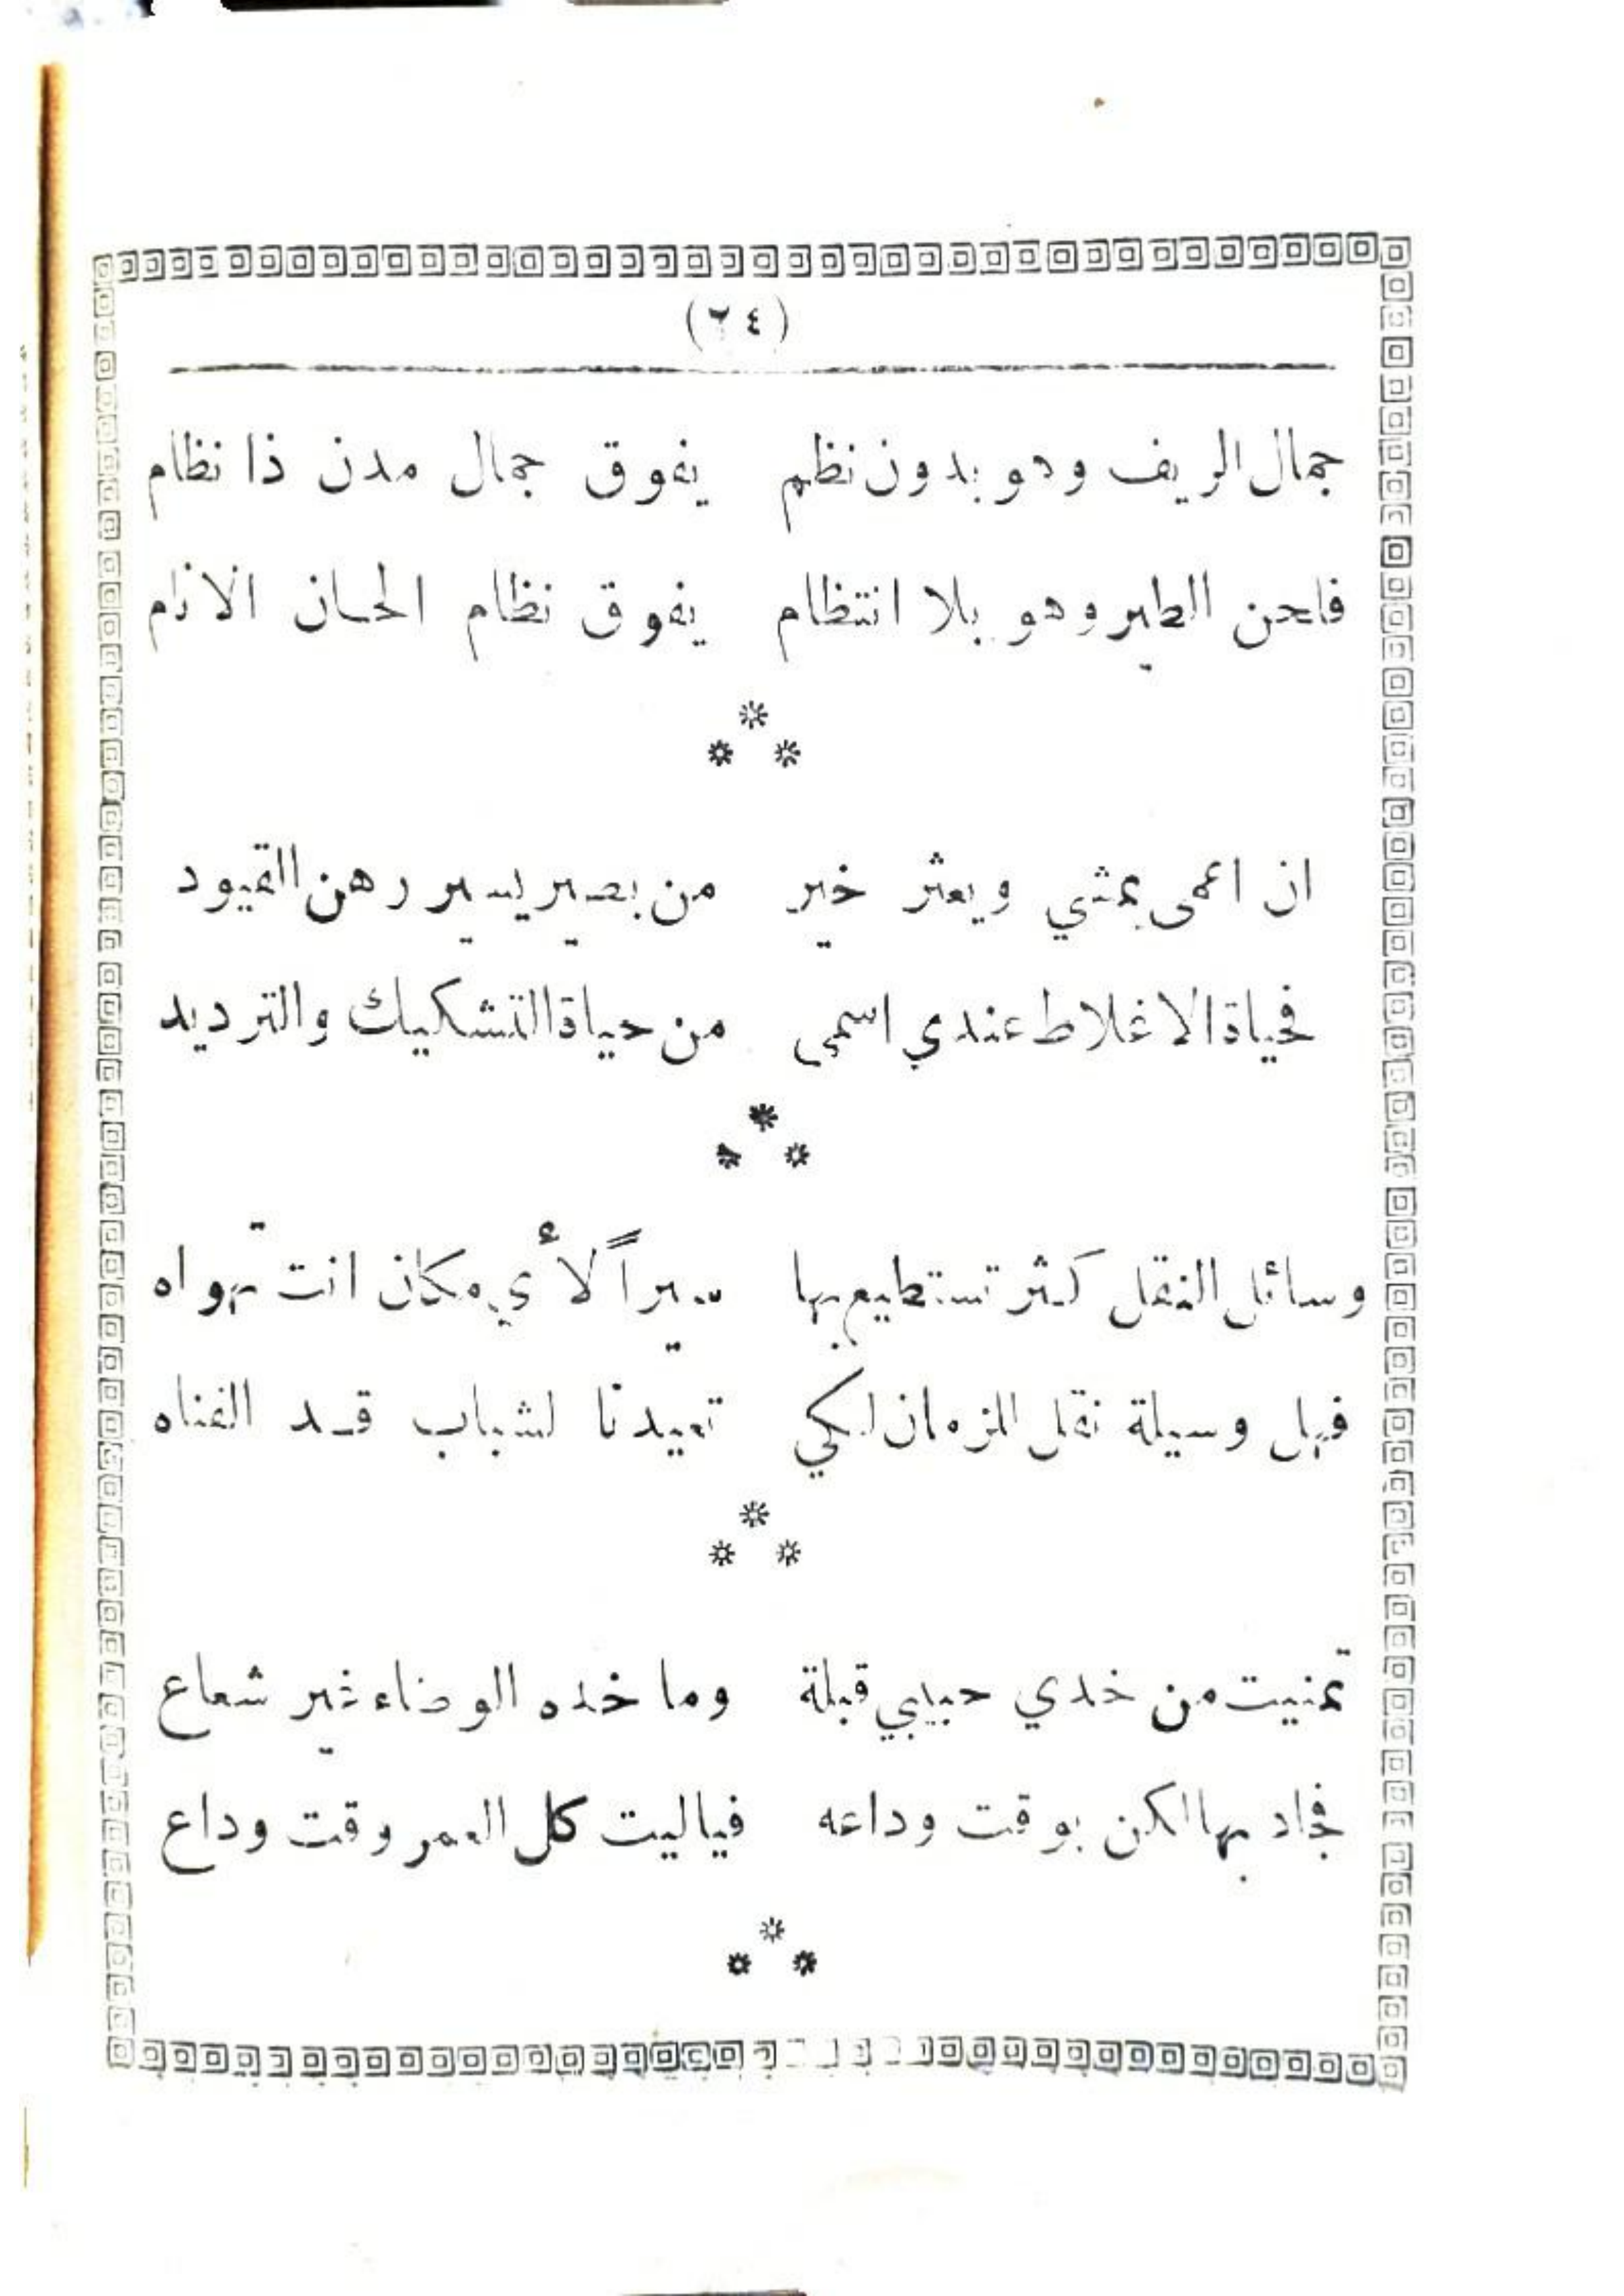 (٢٤)
جمال الريف وهو بدون نظم يفوق جمال مدن ذا نظام
فلحن الطير وهو بلا انتظام يفوق نظام الحان الانام
* * *
ان اعمى يمشي ويعثر خير من بصير يسير رهن القيود
فحياة الاغلاط عندي اسمى من حياة التشكيك والترديد
* * *
وسائل النقل كثر تستطيع بها سيراً لأي مكان انت تهواه
فهل وسيلة نقل للزمان لكي تعيدنا لشباب قد الفناه
* * *
تمنيت من خدي حبيبي قبلة وما خده الوضاء غير شعاع
فجاد بها لكن بوقت وداعه فياليت كل العمر وقت وداع
* * *